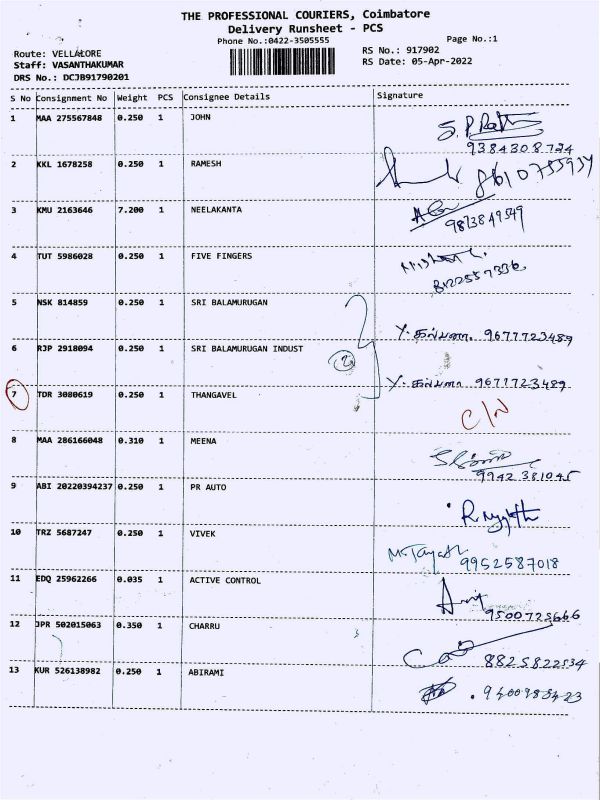 THE PROFESSIONAL COURIERS, Coimbatore
Delivery Runsheet - PCS
Phone No.:0422-3505555
Page No.:1
Route: VELLALORE
Staff: VASANTHAKUMAR
DRS No.: DCJB91790201
RS No.: 917902
RS Date: 05-Apr-2022
S No Consignment No Weight PCS Consignee Details Signature
1 MAA 275567848 0.250 1 JOHN
9384308724
2 KKL 1678258 0.250 1 RAMESH
3 KMU 2163646 7.200 1 NEELAKANTA
4 TUT 5986028 0.250 1 FIVE FINGERS
8122557336
5 NSK 814859 0.250 1 SRI BALAMURUGAN
Y. கல்பனா. 9677723489
6 RJP 2918094 0.250 1 SRI BALAMURUGAN INDUST
2
Y. கல்பனா 9677723489
7 TDR 3080619 0.250 1 THANGAVEL
C/N
8 MAA 286166048 0.310 1 MEENA
9942 381045
9 ABI 20220394237 0.250 1 PR AUTO
10 TRZ 5687247 0.250 1 VIVEK
9952587018
11 EDQ 25962266 0.035 1 ACTIVE CONTROL
9500725666
12 JPR 502015063 0.350 1 CHARRU
8825822534
13 KUR 526138982 0.250 1 ABIRAMI